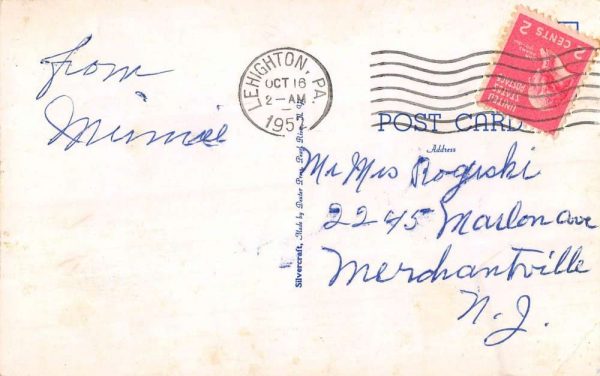 from
Minnie
LEHIGHTON, PA.
OCT 16
2-AM
1957
2 CENTS 2
UNITED
STATES
POSTAGE
POST CARD
Address
Mr Mrs Roguski
2245 Marlon ave
Merchantville
N. J.
Silvercraft, Made by Dexter Press, Pearl River, N. Y.